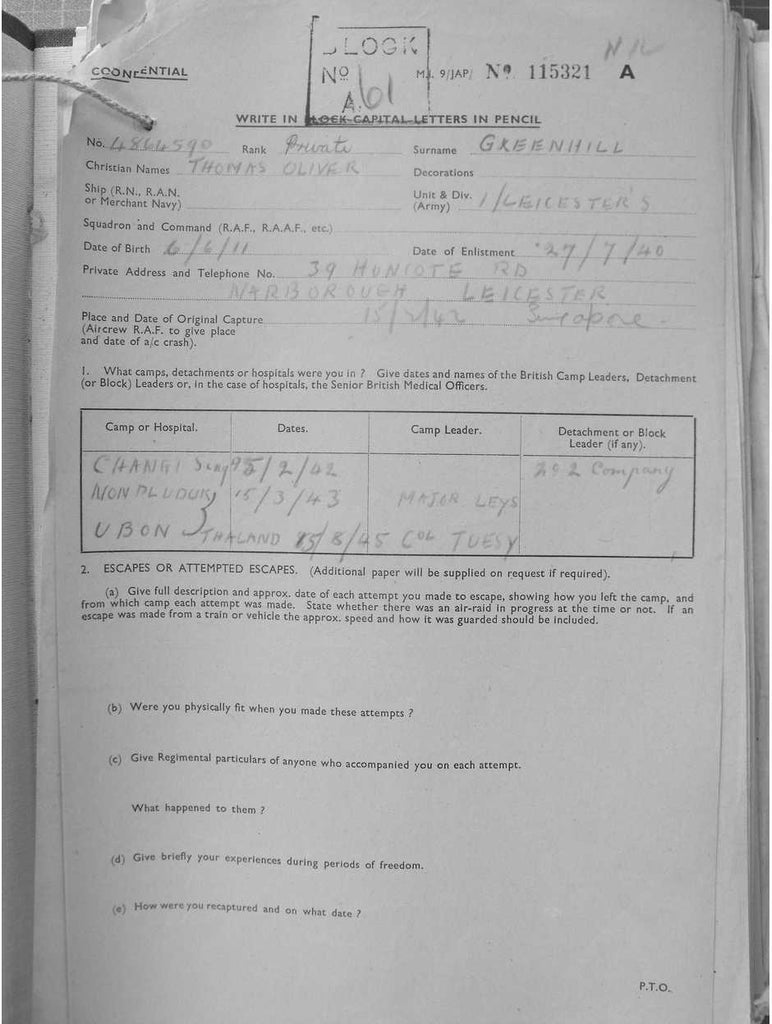 NIL
BLOCK
CONFIDENTIAL
No
M.I. 9/JAP/ No 115321 A
A. 61
WRITE IN BLOCK CAPITAL LETTERS IN PENCIL
No. 4864590 Rank Private Surname GREENHILL
Christian Names THOMAS OLIVER Decorations
Ship (R.N., R.A.N. or Merchant Navy) Unit & Div. (Army) 1/LEICESTER'S
Squadron and Command (R.A.F., R.A.A.F., etc.)
Date of Birth 6/6/11 Date of Enlistment 27/7/40
Private Address and Telephone No. 39 HUNCOTE RD
NARBOROUGH LEICESTER
Place and Date of Original Capture 15/2/42 Singapore
(Aircrew R.A.F. to give place
and date of a/c crash).
1. What camps, detachments or hospitals were you in ? Give dates and names of the British Camp Leaders, Detachment
(or Block) Leaders or, in the case of hospitals, the Senior British Medical Officers.
Camp or Hospital. Dates. Camp Leader. Detachment or Block Leader (if any).
CHANGI Sing 15/2/42 202 Company
NONPLUDUK 15/3/43 MAJOR LEYS
UBON THALAND 15/8/45 COL TUESY
2. ESCAPES OR ATTEMPTED ESCAPES. (Additional paper will be supplied on request if required).
(a) Give full description and approx. date of each attempt you made to escape, showing how you left the camp, and
from which camp each attempt was made. State whether there was an air-raid in progress at the time or not. If an
escape was made from a train or vehicle the approx. speed and how it was guarded should be included.
(b) Were you physically fit when you made these attempts ?
(c) Give Regimental particulars of anyone who accompanied you on each attempt.
What happened to them ?
(d) Give briefly your experiences during periods of freedom.
(e) How were you recaptured and on what date ?
P.T.O.